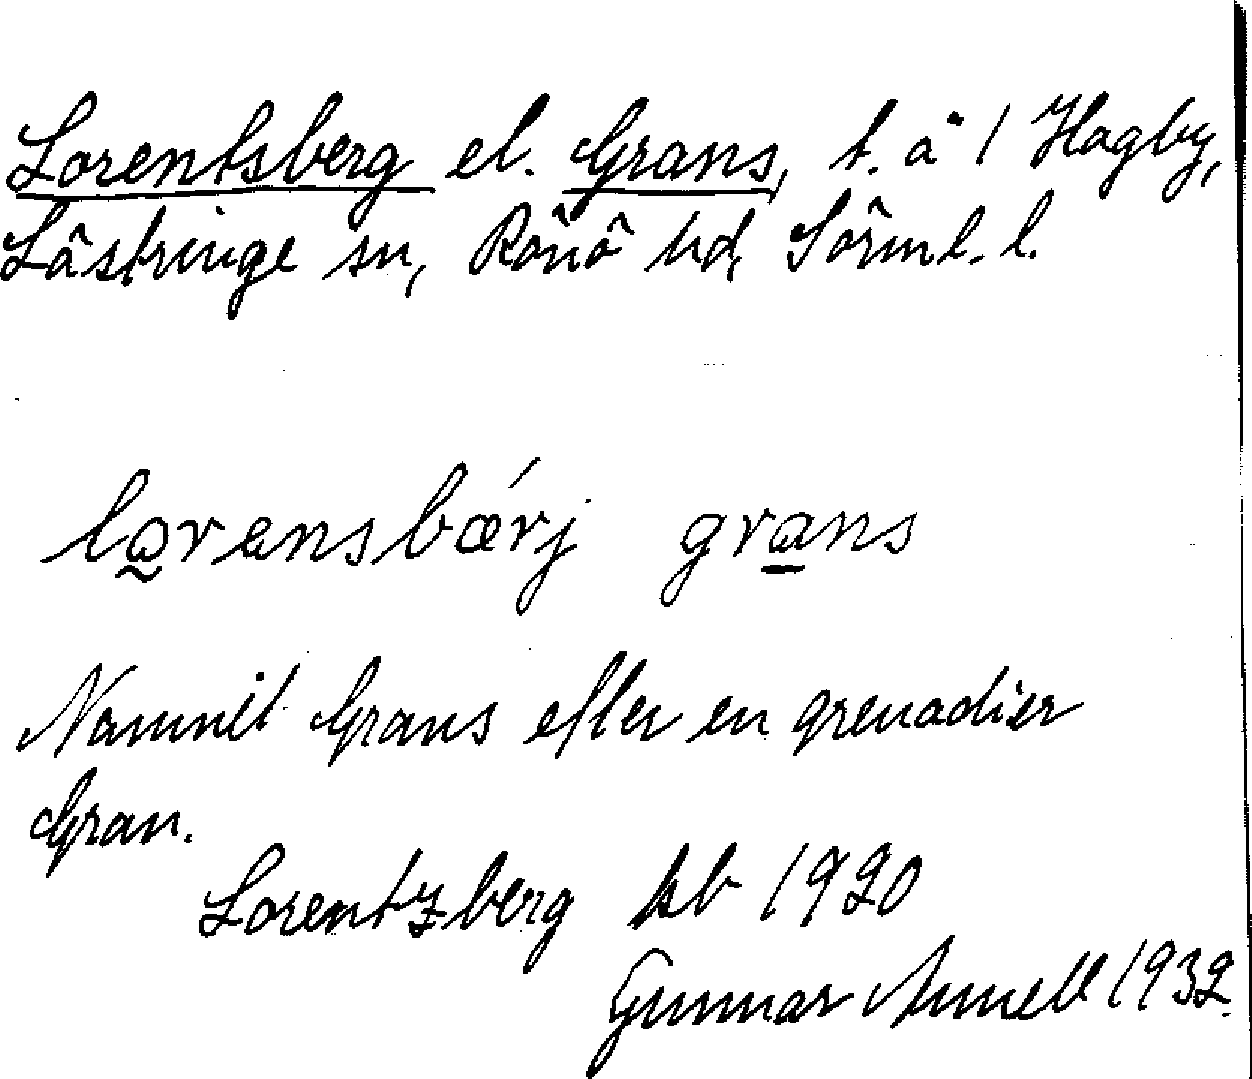 Lorentsberg el. Grans, t. å 1 Hagby,
Lästringe sn, Rönö hd, Sörml. l.
lorensbærj grans
Namnet Grans efter en grenadier
Gran.
Lorentzberg kb 1920
Gunnar 1932.